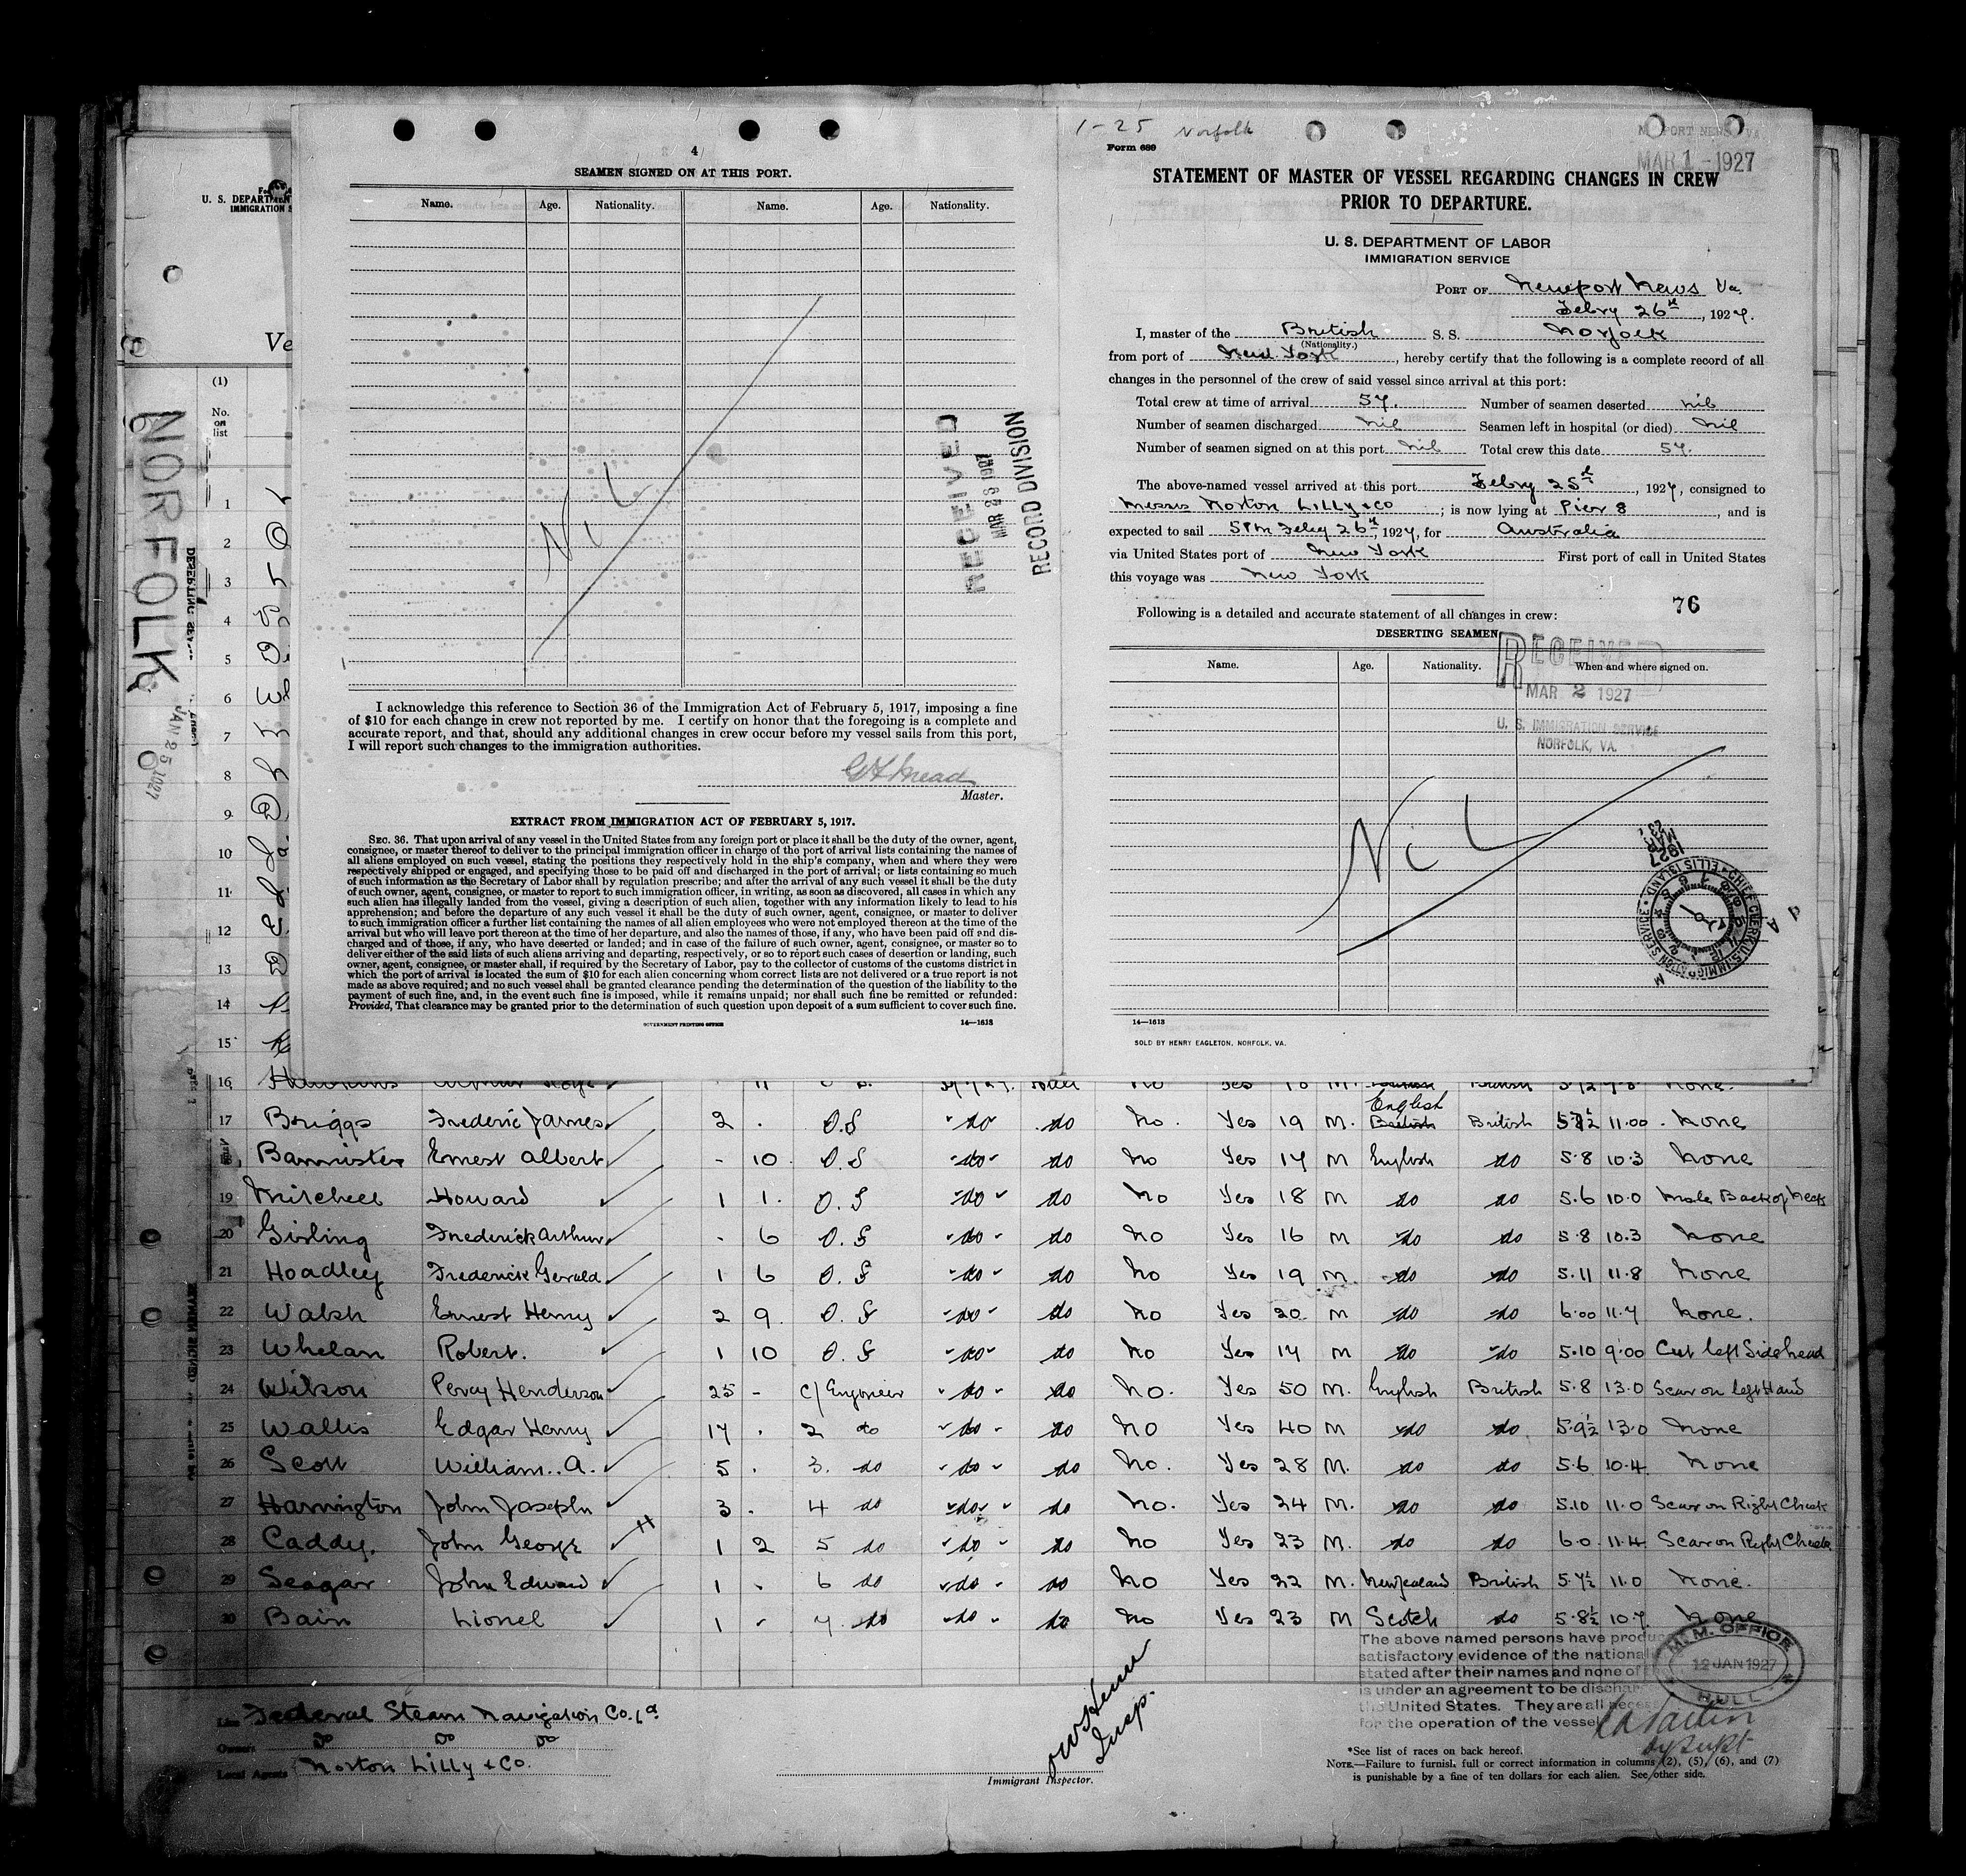 4
SEAMEN SIGNED ON AT THIS PORT.
Name. Age. Nationality. Name. Age. Nationality.
NIL
RECEIVED
MAR 28 1927
RECORD DIVISION
I acknowledge this reference to Section 36 of the Immigration Act of February 5, 1917, imposing a fine
of $10 for each change in crew not reported by me. I certify on honor that the foregoing is a complete and
accurate report, and that, should any additional changes in crew occur before my vessel sails from this port,
I will report such changes to the immigration authorities.
Master.
EXTRACT FROM IMMIGRATION ACT OF FEBRUARY 5, 1917.
SEC. 36. That upon arrival of any vessel in the United States from any foreign port or place it shall be the duty of the owner, agent,
consignee, or master thereof to deliver to the principal immigration officer in charge of the port of arrival lists containing the names of
all aliens employed on such vessel, stating the positions they respectively hold in the ship's company, when and where they were
respectively shipped or engaged, and specifying those to be paid off and discharged in the port of arrival; or lists containing so much
of such information as the Secretary of Labor shall by regulation prescribe; and after the arrival of any such vessel it shall be the duty
of such owner, agent, consignee, or master to report to such immigration officer, in writing, as soon as discovered, all cases in which any
such alien has illegally landed from the vessel, giving a description of such alien, together with any information likely to lead to his
apprehension; and before the departure of any such vessel it shall be the duty of such owner, agent, consignee, or master to deliver
to such immigration officer a further list containing the names of all alien employees who were not employed thereon at the time of the
arrival but who will leave port thereon at the time of her departure, and also the names of those, if any, who have been paid off and dis-
charged and of those, if any, who have deserted or landed; and in case of the failure of such owner, agent, consignee, or master so to
deliver either of the said lists of such aliens arriving and departing, respectively, or so to report such cases of desertion or landing, such
owner, agent, consignee, or master shall, if required by the Secretary of Labor, pay to the collector of customs of the customs district in
which the port of arrival is located the sum of $10 for each alien concerning whom correct lists are not delivered or a true report is not
made as above required; and no such vessel shall be granted clearance pending the determination of the question of the liability to the
payment of such fine, and, in the event such fine is imposed, while it remains unpaid; nor shall such fine be remitted or refunded:
Provided, That clearance may be granted prior to the determination of such question upon deposit of a sum sufficient to cover such fine.
GOVERNMENT PRINTING OFFICE 14—1613
1-25 Norfolk
Form 689
PORT NEWS VA
MAR 1-1927
STATEMENT OF MASTER OF VESSEL REGARDING CHANGES IN CREW
PRIOR TO DEPARTURE.
U. S. DEPARTMENT OF LABOR
IMMIGRATION SERVICE
PORT OF Newport News Va.
Febry 26th, 1927.
I, master of the British S. S. Norfolk
(Nationality.)
from port of New York, hereby certify that the following is a complete record of all
changes in the personnel of the crew of said vessel since arrival at this port:
Total crew at time of arrival 57. Number of seamen deserted nil
Number of seamen discharged nil Seamen left in hospital (or died) nil
Number of seamen signed on at this port nil Total crew this date 57.
The above-named vessel arrived at this port Febry 25th, 1927, consigned to
Messrs Norton Lilly & Co; is now lying at Pier 8, and is
expected to sail 5PM Febry 26th, 1927, for Australia
via United States port of New York First port of call in United States
this voyage was New York
76
Following is a detailed and accurate statement of all changes in crew:
DESERTING SEAMEN
Name. Age. Nationality. When and where signed on.
RECEIVED
MAR 2 1927
U. S. IMMIGRATION SERVICE
NORFOLK, VA.
NIL
14—1613
SOLD BY HENRY EAGLETON, NORFOLK, VA.
U. S. DEPARTMEN
IMMIGRATION S
Ve
(1)
No.
on
list
NORFOLK
JAN 25 1927
1
2
3
4
5
6
7
8
9
10
11
12
13
14
15
16
17 Briggs Frederic James 2 . O.S do do No. Yes 19 M. English British 5·7½ 11.00 None
18 Bannister Ernest Albert - 10 O.S do do No Yes 17 M English do 5·8 10·3 None
19 Mitchell Howard 1 1. O.S do do No Yes 18 M do do 5.6 10.0 Mole Back of Neck
20 Girling Frederick Arthur - 6 O.S do do No Yes 16 M do do 5·8 10.3 None
21 Hoadley Frederick Gerald 1 6 O.S do do No Yes 19 M. do do 5.11 11·8 None
22 Walsh Ernest Henry 2 9. O.S do do No Yes 20 M do do 6·00 11·7 None.
23 Whelan Robert. 1 10 O.S do do No Yes 17 M do do 5·10 9·00 Cut left Side head
24 Wilson Percy Henderson 25 - C/Engineer do do No. Yes 50 M. English British 5·8 13.0 Scar on left Hand
25 Wallis Edgar Henry 17 . 2 do do do No Yes 40 M do do 5·9½ 13·0 None
26 Scott William. A. 5 . 3. do do do No. Yes 28 M. do do 5·6 10·4 None
27 Harrington John Joseph 3 . 4 do do do No. Yes 24 M. do do 5.10 11.0 Scar on Right Cheek
28 Caddy. John George 1 2 5 do do do No Yes 23 M. do do 6·0 11·4 Scar on Right Cheek
29 Seagar John Edward 1 - 6 do do do No Yes 22 M. New Zealand British 5·7½ 11.0 None.
30 Bain Lionel 1 - 7 do do do No Yes 23 M Scotch do 5·8½ 10·7 None
The above named persons have produc
satisfactory evidence of the national
stated after their names and none of
is under an agreement to be dischar
the United States. They are all neces
for the operation of the vessel
M. M. OFFICE
12 JAN 1927
HULL
Line Federal Steam Navigation Co. Ld
Owners do do do
Local Agents Norton Lilly & Co.
Insp.
Immigrant Inspector.
*See list of races on back hereof.
NOTE.—Failure to furnish full or correct information in columns (2), (5), (6), and (7)
is punishable by a fine of ten dollars for each alien. See other side.